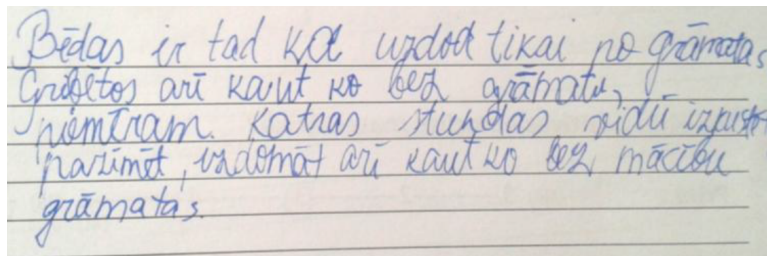 Bēdas ir tad ka uzdod tikai no grāmatas
Gribētos arī kaut ko bez grāmatu,
piemēram. Katras stundas vidū
pazīmēt, uzdomāt arī kaut ko bez mācību
grāmatas.